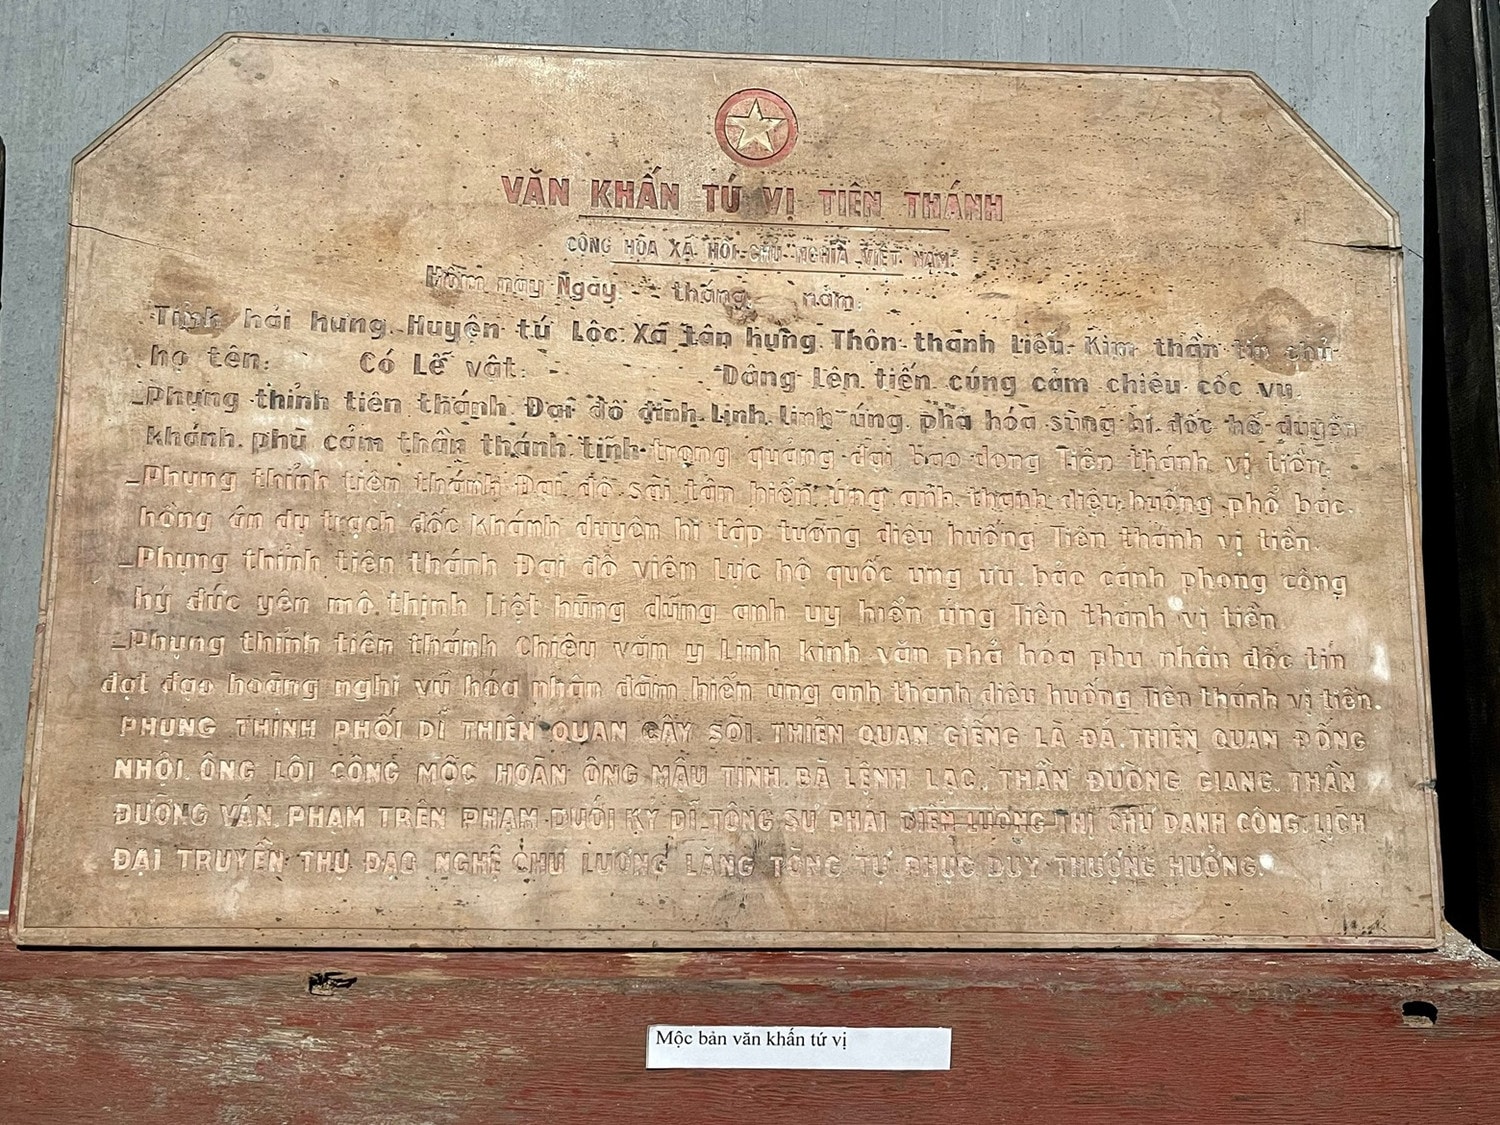 VĂN KHẤN TỨ VỊ TIÊN THÁNH
CỘNG HÒA XÃ HỘI CHỦ NGHĨA VIỆT NAM
Hôm nay Ngày. tháng năm.
Tỉnh hải hưng. Huyện tứ Lộc. Xã tân hưng. Thôn thanh liễu. Kim thần tín chủ
họ tên: Có Lễ vật: Dâng Lên tiến cúng cảm chiêu cốc vụ
_Phụng thỉnh tiên thánh Đại đô đình Linh linh ứng phả hóa sùng hi đốc hố duyên
khánh phù cảm thần thánh tịnh trọng quảng đại bao dong Tiên thánh vị tiền.
_Phụng thỉnh tiên thánh Đại đô sài tân hiển ứng anh thanh diệu huống phổ bác
hồng ân dụ trạch đốc khánh duyên hi tập tướng diệu huống Tiên thánh vị tiền.
_Phụng thỉnh tiên thánh Đại đô viên Lục hộ quốc ưng ưu bảo cảnh phong công
hý đức yên mô thịnh Liệt hùng dũng anh uy hiển ứng Tiên thánh vị tiền
_Phụng thỉnh tiên thánh Chiêu văn y Linh kinh văn phả hóa phu nhân đốc tín
đạt đạo hoằng nghị vũ hóa nhận dâm hiển ứng anh thanh diệu huống Tiên thánh vị tiền.
PHỤNG THỈNH PHỐI DĨ THIÊN QUAN CÂY SÒI. THIÊN QUAN GIẾNG LÀ ĐÁ. THIÊN QUAN ĐỐNG
NHỘI. ÔNG LÔI CÔNG MỘC HOÀN ÔNG MẬU TINH. BÀ LỆNH LẠC. THẦN ĐƯỜNG GIANG. THẦN
ĐƯƠNG VÁN. PHẠM TRÊN PHẠM DƯỚI KỲ DĨ TÔNG SƯ PHÁI DIỄN LƯƠNG THỊ CHƯ DANH CÔNG. LỊCH
ĐẠI TRUYỀN THỤ ĐẠO NGHỆ CHƯ LƯƠNG LĂNG TÒNG TỰ PHỤC DUY THƯỢNG HƯỞNG.
Mộc bản văn khấn tứ vị